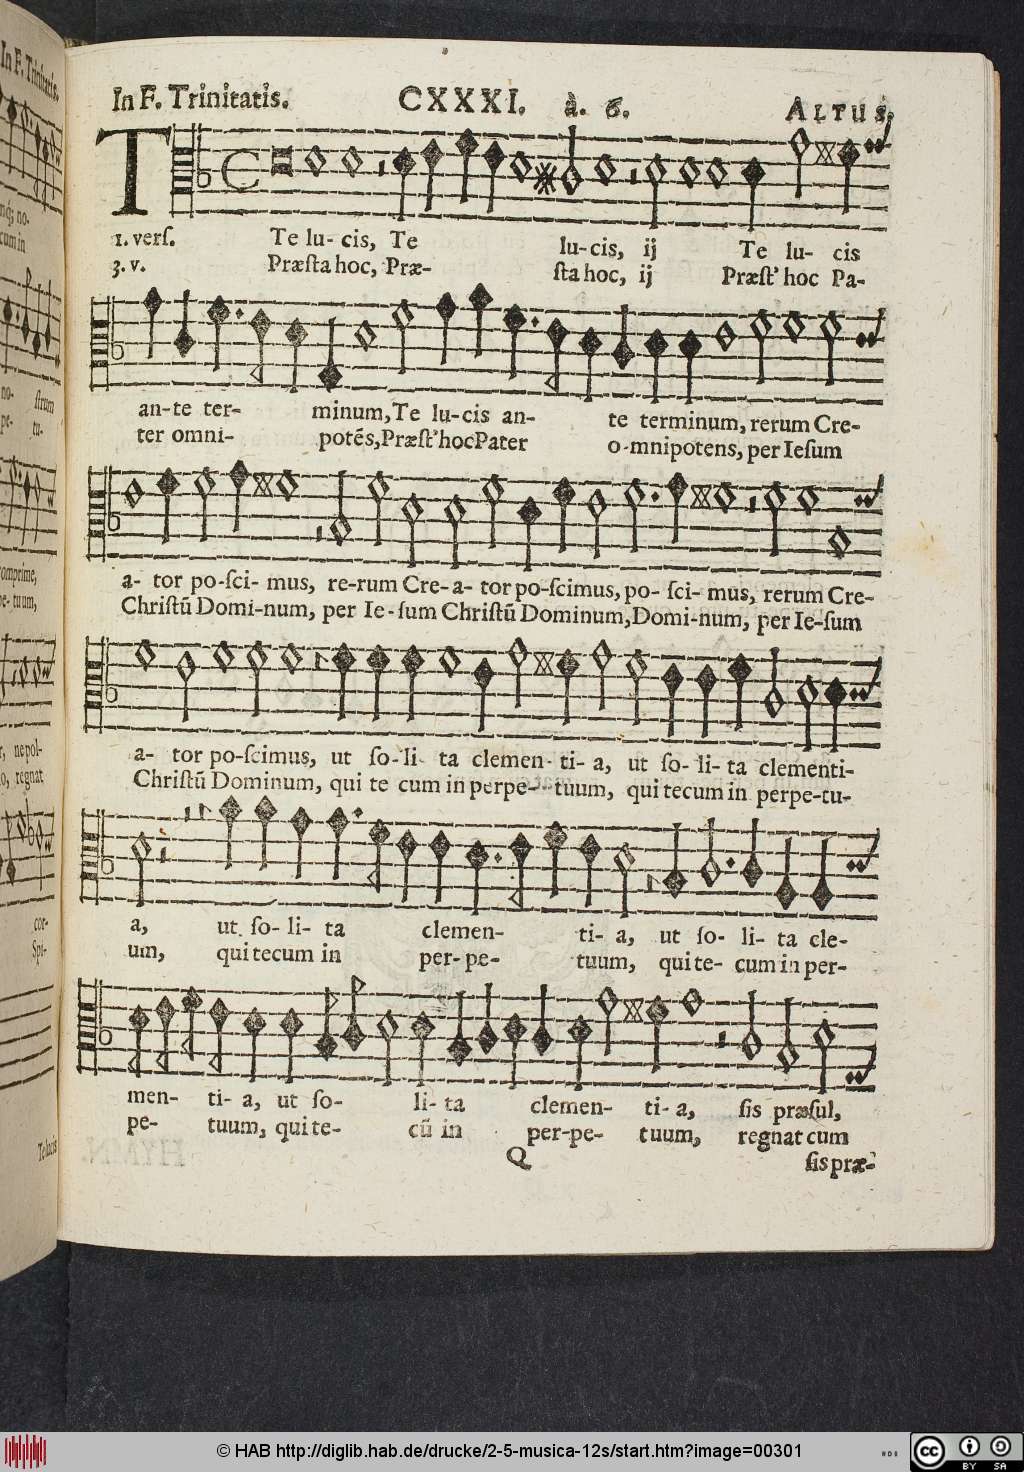 In F. Trinitatis. CXXXI. à. 6. ALTUS.
T
1. verſ. Te lu- cis, Te lu-cis, ij Te lu- cis
3. v. Præſta hoc, Præ- ſta hoc, ij Præſt' hoc Pa-
an-te ter- minum, Te lu-cis an- te terminum, rerum Cre-
ter omni- potẽs, Præſt' hoc Pater o-mnipotens, per Ieſum
a- tor po-ſci- mus, re-rum Cre-a-tor po-ſcimus, po- ſci- mus, rerum Cre-
Chriſtũ Domi-num, per Ie-ſum Chriſtũ Dominum, Domi-num, per Ie-ſum
a- tor po-ſcimus, ut ſo-li- ta clemen- ti- a, ut ſo- li- ta clementi-
Chriſtũ Dominum, qui te cum in perpe- tuum, qui tecum in perpe-tu-
a, ut ſo- li- ta clemen- ti- a, ut ſo- li- ta cle-
um, qui tecum in per- pe- tuum, qui te- cum in per-
men- ti- a, ut ſo- li- ta clemen- ti- a, ſis præſul,
pe- tuum, qui te- cũ in per-pe- tuum, regnat cum
Q ſis præ-
In F. Trinitatis.
no-
cum in
no- ſtrum
pe- tu-
comprime,
pe-tuum,
ne pol-
regnat
cor-
Spi-
Te lucis
© HAB http://diglib.hab.de/drucke/2-5-musica-12s/start.htm?image=00301
cc BY SA